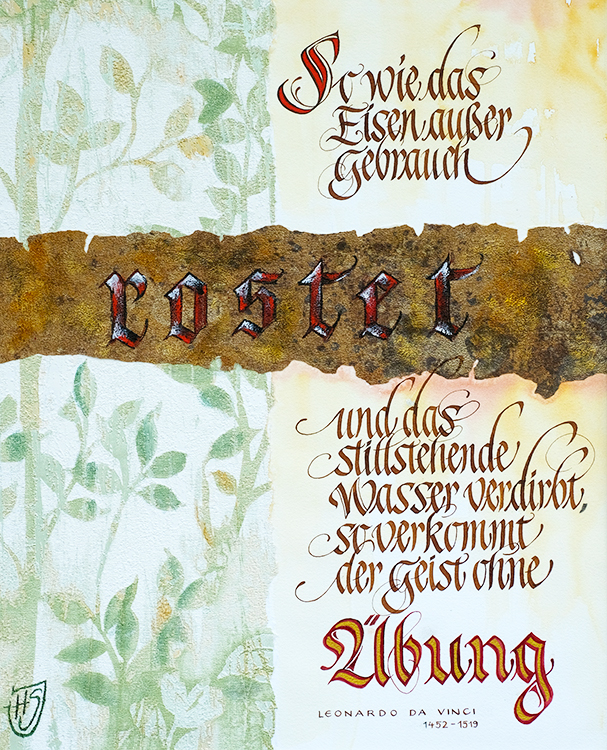 So wie das
Eisen außer
Gebrauch
rostet
und das
stillstehende
Wasser verdirbt,
so verkommt
der Geist ohne
Übung
LEONARDO DA VINCI
1452 - 1519
HS